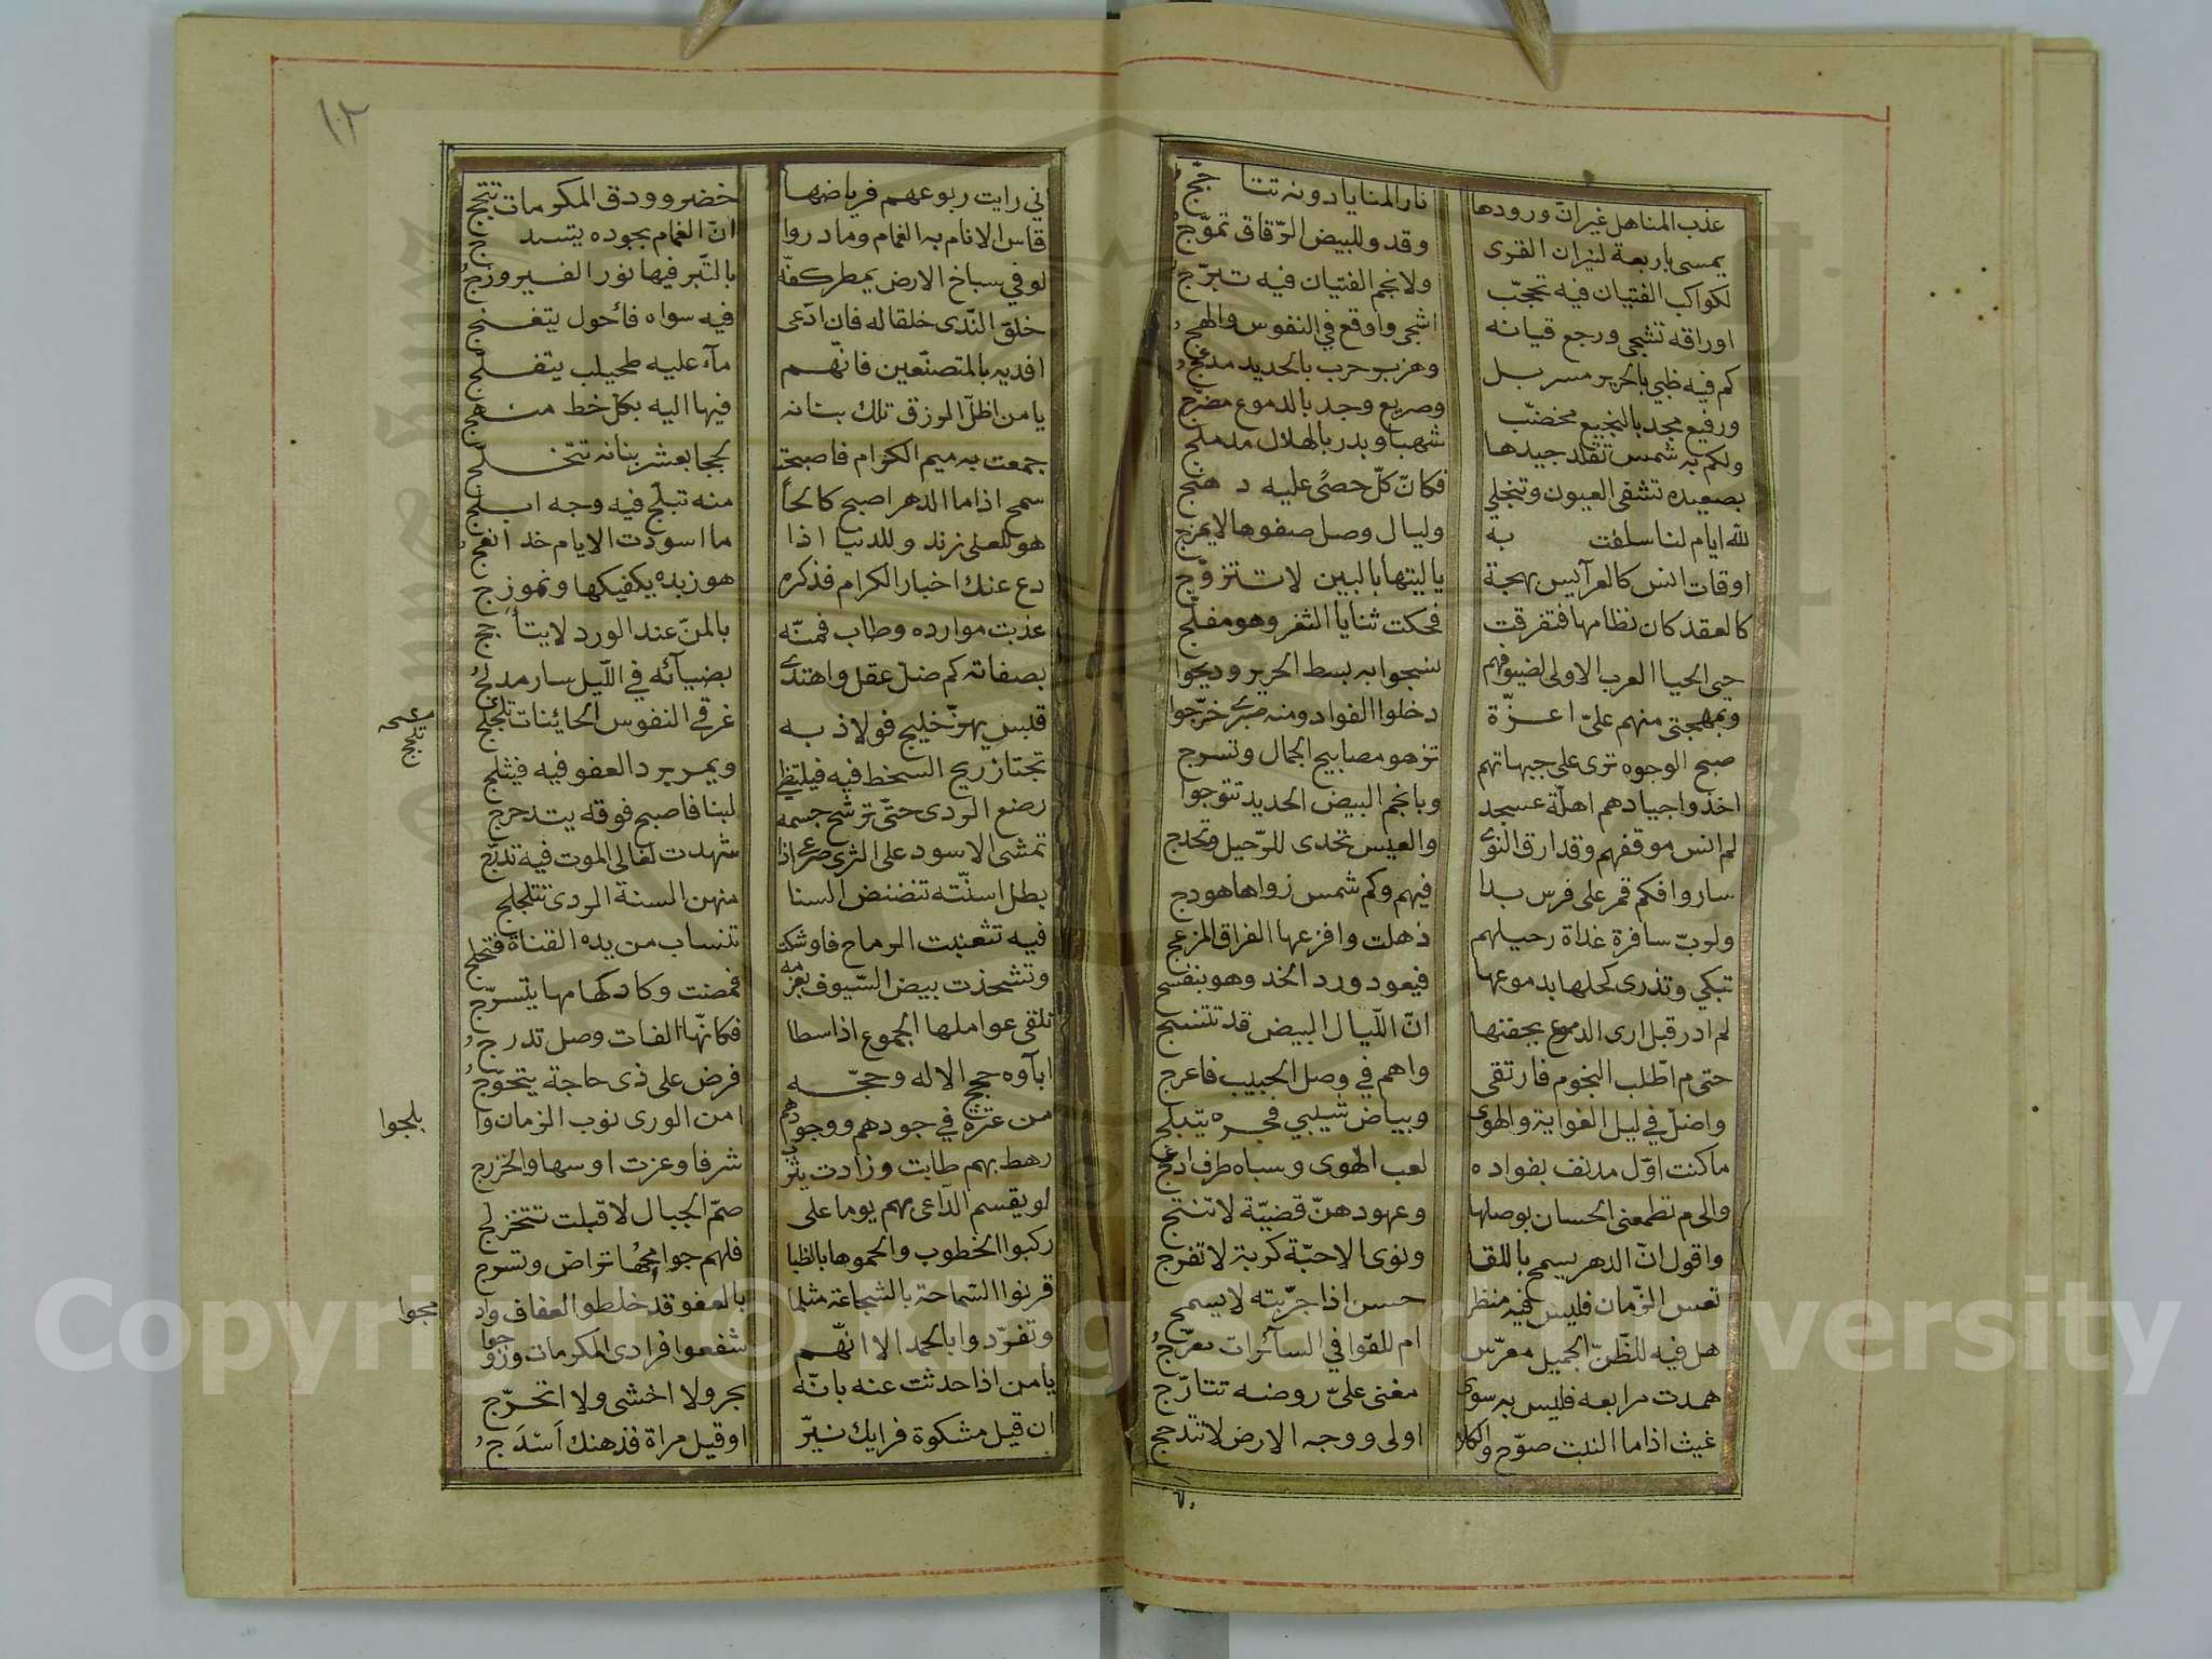 عذب المناهل غير انّ ورودها نار المنايا دونه تتاجّج
يمسى باربعة لنيران القرى وقد وللبيض الرّقاق تموّج
لكواكب الفتيان فيه تحجّب ولانجم الفتيان فيه تبرّج
اوراقه تشجى ورجع قيانه اشجى واوقع في النفوس والهج
كم فيه ظبي بالحرير مسربل وهزبر حرب بالحديد مدجّج
ورفيع مجد بالنجيع مخضّب وصريع وجد بالدموع مضرّج
ولكم به شمس تقلد جيدها شهبا وبدر بالهلال مدملج
بصعيده تشفى العيون وتنجلي فكانّ كلّ حصًى عليه دهنج
لله ايام لنا سلفت به وليال وصل صفوها لا يمزج
اوقات انس كالعرآيس بهجة ياليتها بالبين لا تتزوّج
كالعقد كان نظامها فتفرقت فحكت ثنايا الثغر وهو مفلّج
حيى الحيا العرب الاولى لضيوفهم نسجوا به بسط الحرير ودبجوا
وبمهجتى منهم علىّ اعزّة دخلوا الفواد ومنه صبرى خرّجوا
صبح الوجوه ترى على جبهاتهم تزهو مصابيح الجمال وتسرج
اخذوا جيادهم اهلّة عسجد وبانجم البيض الحديد تتوجوا
لم انس موقفهم وقد ازف النوى والعيس تحدى للرّحيل وتحدج
ساروا فكم قمر على فرس بدا فيهم وكم شمس زواها هودج
ولربّ سافرة غداة رحيلهم ذهلت وافزعها الفراق المزعج
تبكي وتذرى كحلها بدموعها فيعود ورد الخد وهو بنفسج
لم ادر قبل ارى الدموع بجفنها انّ اللّيال البيض قد تتنسج
حتى م اطّلب النجوم فارتقى واهم في وصل الحبيب فاعرج
واضلّ في ليل الغواية والهوى وبياض شيبي فجره يتبلج
ماكنت اوّل مدنف بفواده لعب الهوى وسباه طرف ادعج
والى م تطمعنى الحسان بوصلها وعهودهنّ قضيّة لا تنتج
واقول انّ الدهر يسمح باللقا ونوى الاحبّة كربة لا تفرج
تعس الزّمان فليس فيه منظر حسن اذا جرّبته لا يسمج
هل فيه للظّنّ الجميل معرّس ام للقوافي السآئرات معرّج
همدت مرابعه فليس به سوى مغنى علىّ روضه تتارّج
غيث اذا ما النبت صوّح والكلا اولى ووجه الارض لا تتدجج
اني رايت ربوعهم فرياضها خضر وودق المكرمات تثجّج
قاس الانام به الغمام وما دروا انّ الغمام بجوده
لو في سباخ الارض يمطر كفّه بالتّبر فيها نوّر الفيروزج
خلق النّدى خلقا له فان ادّعى فيه سواه فاحول يتغنج
افديه بالمتصنّعين فانّهم مآء عليه طحيلب
يا من اظلّ الرزق تلك بنانه فيها اليه بكلّ خط منهج
جمعت به ميم الكرام فاصبحت لججا بعشر بنانه تتخلج
سمح اذا ما الدهر اصبح كالحاً منه تبلّج فيه وجه ابلج
هو للعلى زند وللدنيا اذا ما اسودت الايام خد
دع عنك اخبار الكرام فذكره هو زبده يكفيكها ونموزج
عذبت موارده وطاب فمنّه بالمنّ عند الورد لا يتأجج
بصفاته كم ضلّ عقل واهتدى بضيآئه في اللّيل سار مدلج
قلبس يهزّ خليج فولاذ به غرقي النفوس الحائنات تلجلج
تجتاز ريح السخط فيه فيلتظى ويمر برد العفو فيه فيثلج
رضع الردى حتّى ترشح جسمه لبنا فاصبح فوقه يتدحرج
تمشى الاسود على الثرى صرعى اذا شهدت لقالى الموت فيه تدرّج
بطل اسنّته تنضنض السنا منهن السنة الردى تتلجلج
فيه تثعبنت الرماح فاوشكت تنساب من يده القناة فتخلج
وتشحذت بيض السّيوف بعزمه فمضت وكاد كهامها يتسرّج
تلقى عواملها الجموع اذا سطا فكانّها الفات وصل تدرج
ابآوه حجج الاله وحجّه فرض على ذى حاجة يتحوّج
من عترة في جودهم ووجودهم امن الورى نوب الزمان وا بلجوا
رهط بهم طابت وزادت يثرب شرفا وعزت اوسها والخزرج
لو يقسم الدّاعى بهم يوما على صمّ الجبال لاقبلت تتخزلج
ركبوا الخطوب والجموها بالظبا فلهم جوامحها تراض وتسرج
قرنوا السّماحة بالشجاعة مثلما بالعفو قد خلطوا العفاف وادمجوا
وتفرّدوا بالحمد الا انّهم شفعوا فرادى المكرمات وزوجوا
يا من اذا حدثت عنه بانّه بحر ولا اخشى ولا اتحرّج
ان قيل مشكوة فرايك نيّر او قيل مراة فذهنك اسدج
تلجج
بلجوا
مجوا
١٠٢
Copyright © King Saud University